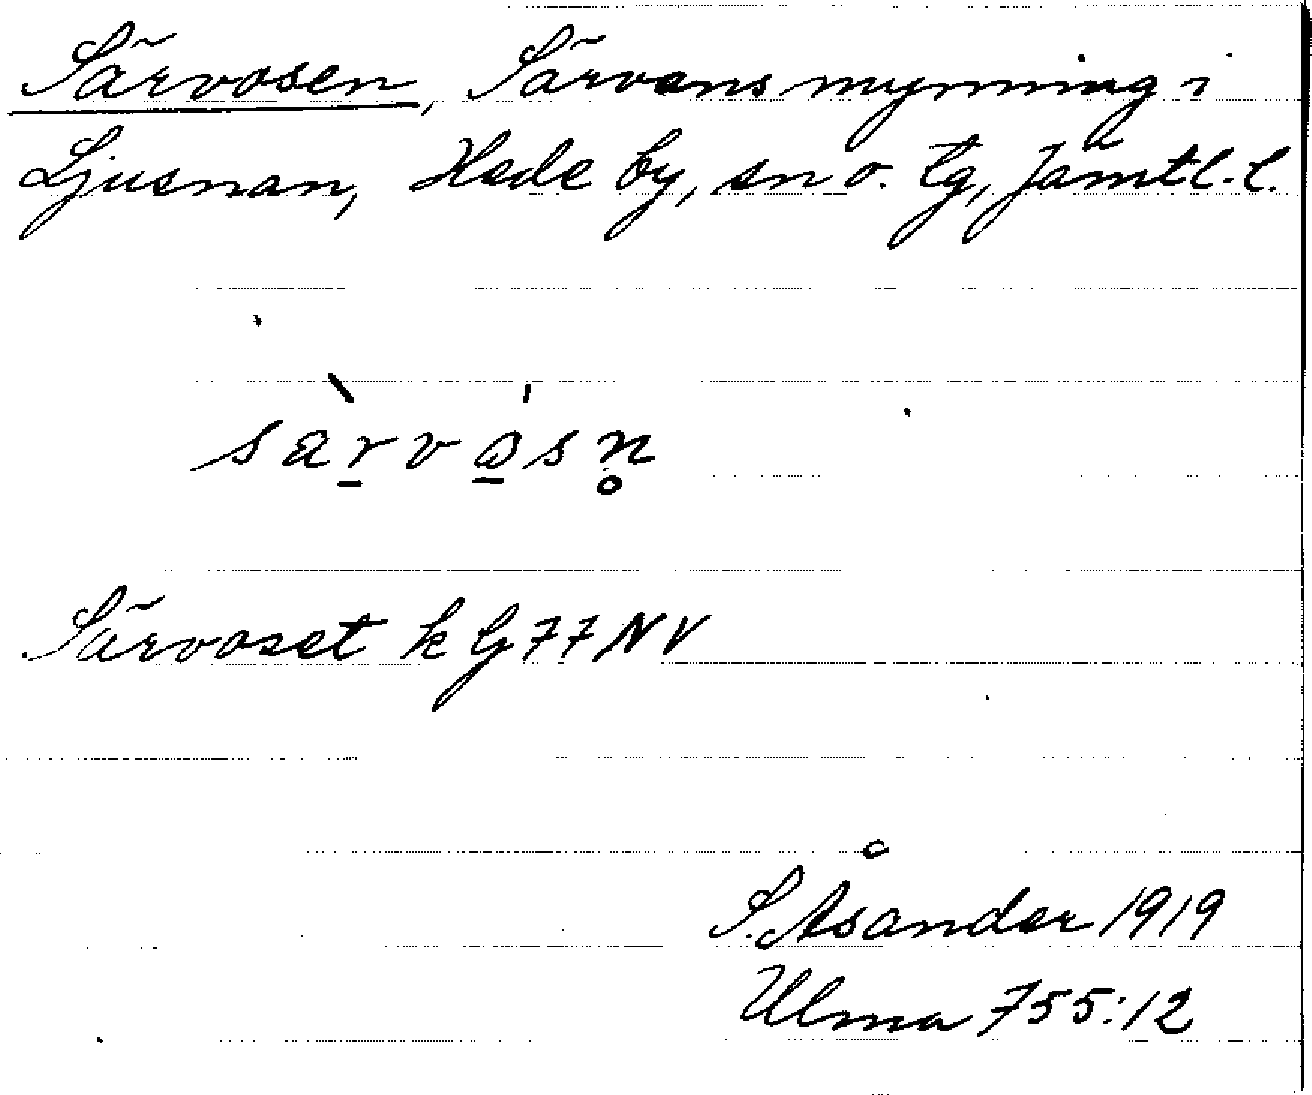 Särvosen, Särvens mynning i
Ljusnan, Hede by, sn o. tg, Jämtl. l.
sàr̠vo̠̍sn̥
Särvoset k G 77 NV
S. Åsander 1919
Ulma 755:12